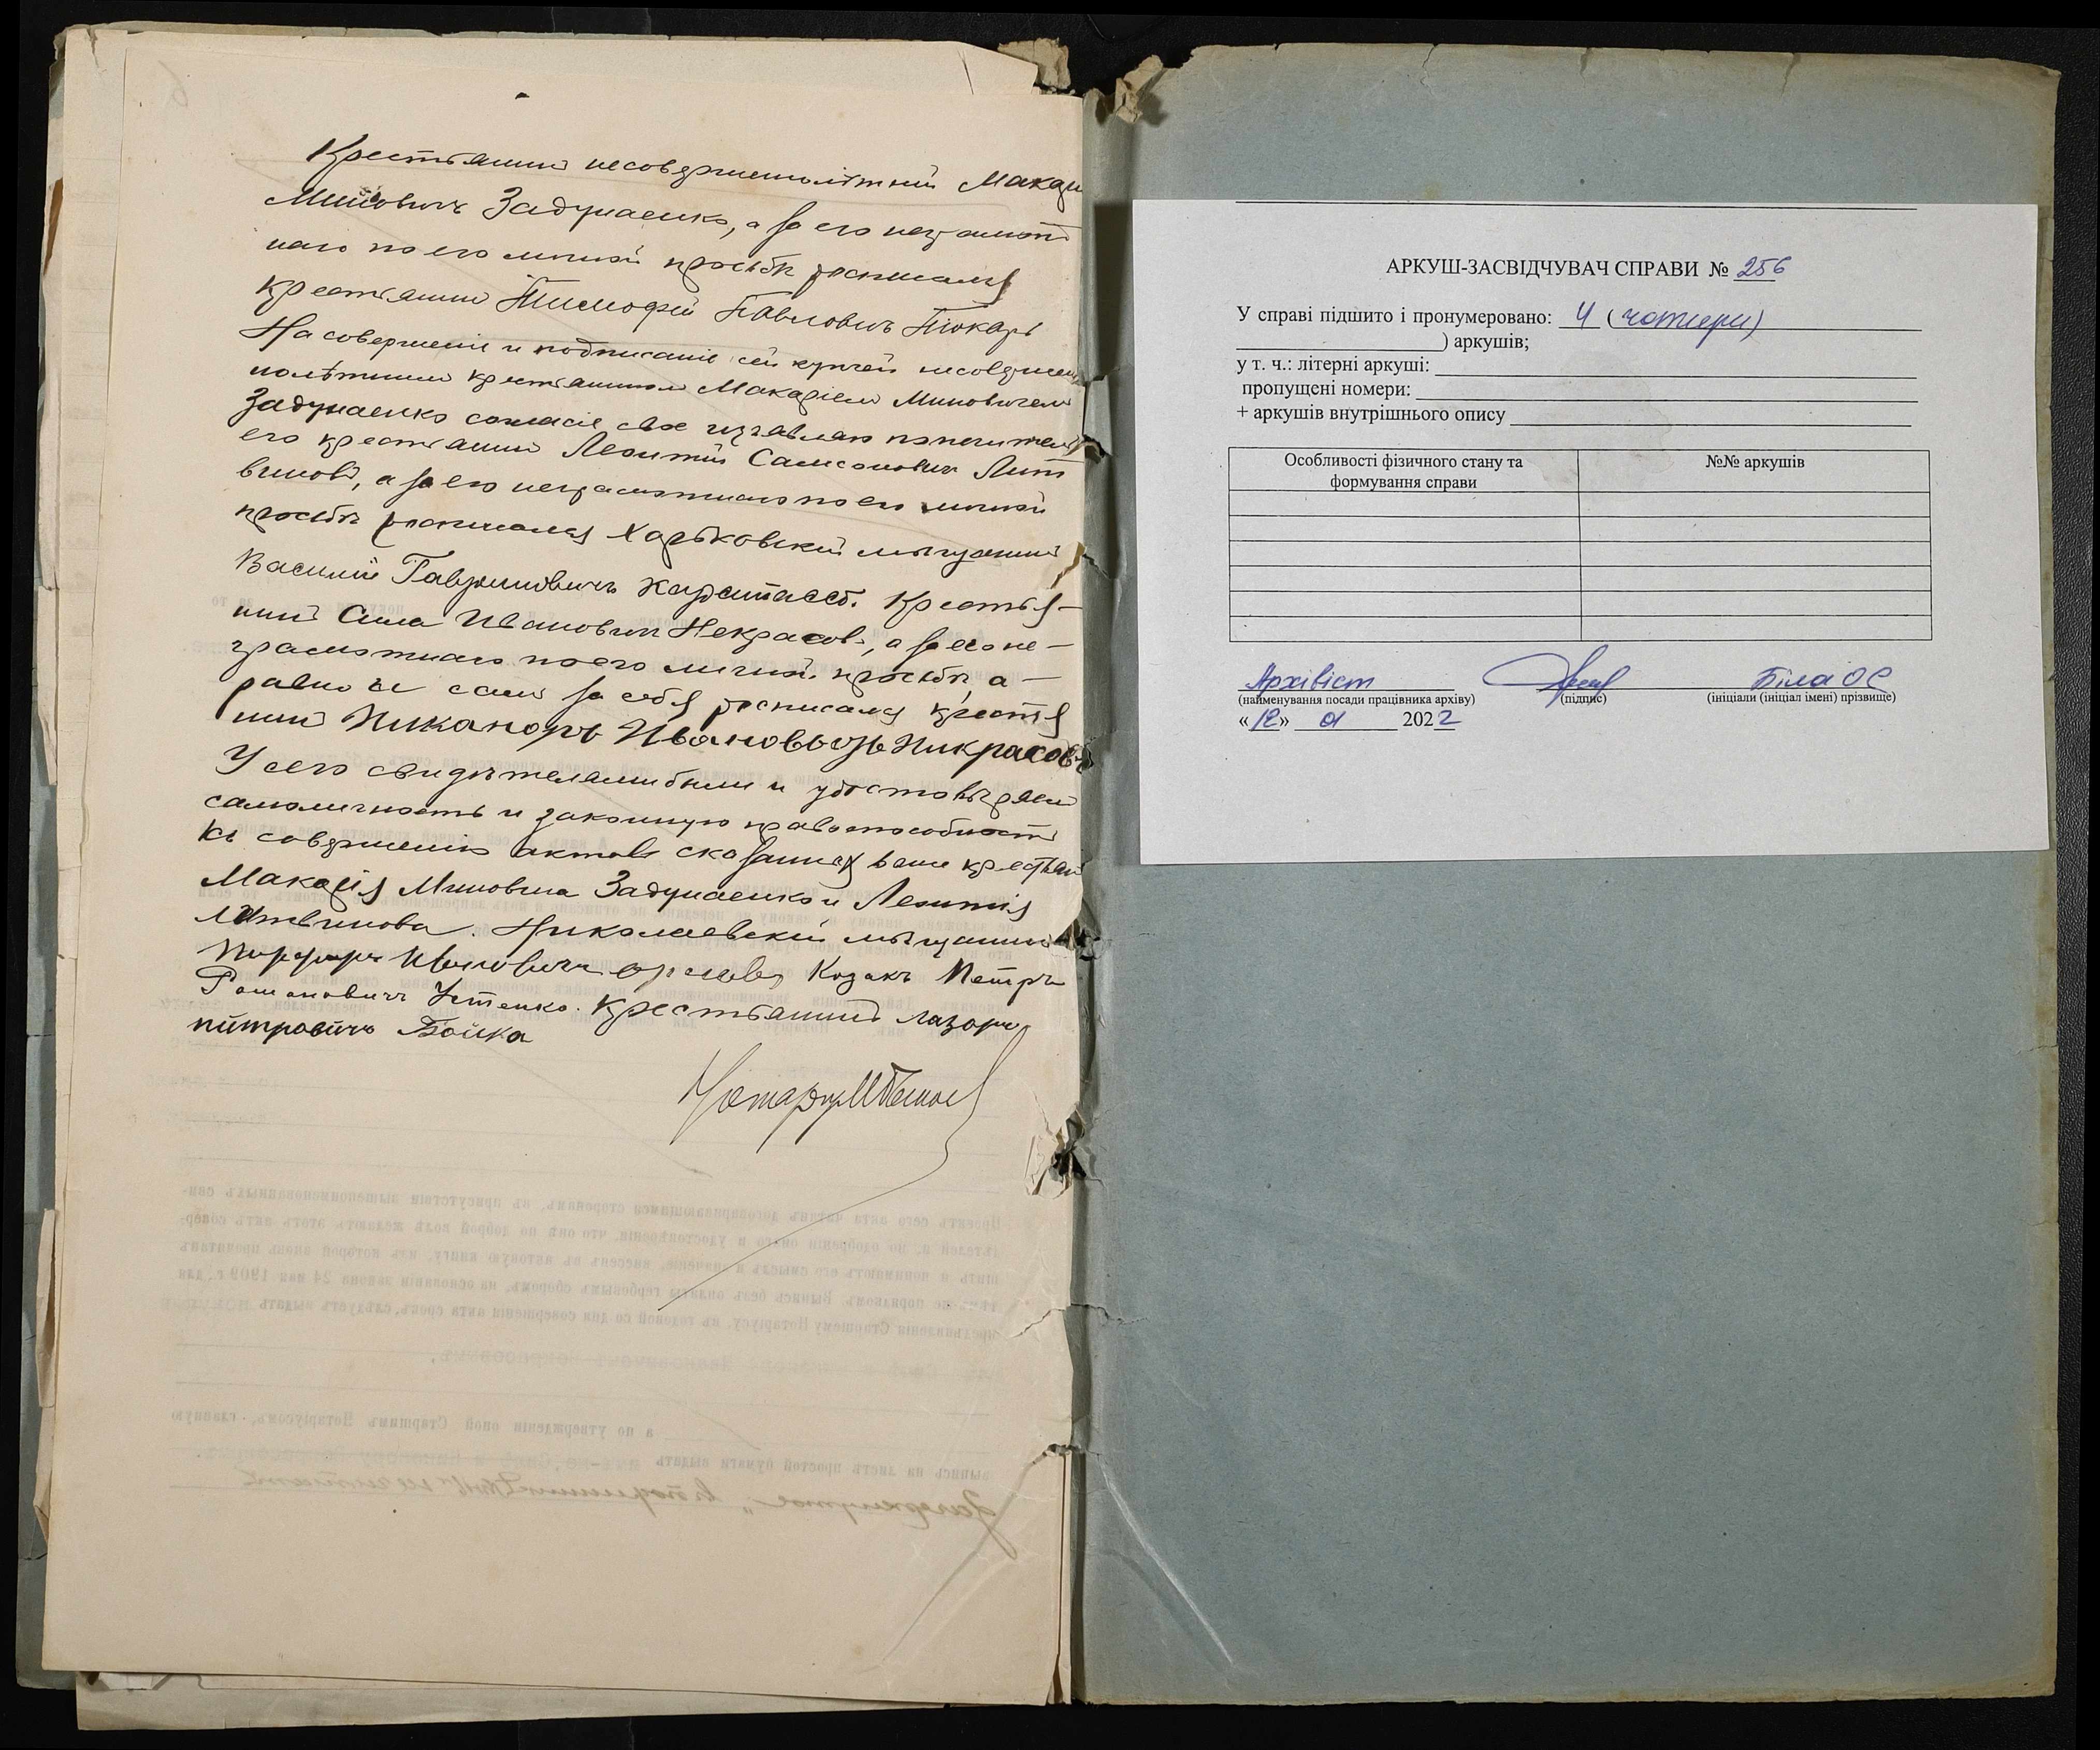 Крестьянинъ несовершеннолѣтній Макарій
Миновичъ Задунаенко, а за его неграмот
наго по его личной просьбѣ росписался
крестьянинъ Тимофей Павловичъ Токарь
На совершеніе и подписаніе сей купчей несовершен
нолѣтнимъ крестьяниномъ Макаріемъ Миновичемъ
Задунаенко согласіе свое изъявляю попечитель
его крестьянинъ Леонтій Самсоновичъ Лит
виновъ, а за его неграмотнаго по его личной
просьбѣ росписался Харьковскій мѣщанинъ
Василій Гавриловичъ Карпассъ. Крестья-
нинъ Сила Ивановичъ Некрасовъ, а за его не-
грамотнаго по его личной просьбѣ, а-
равно и самъ за себя росписался крестья
нинъ Никаноръ Ивановичъ Никрасовъ
У сего свидѣтелями были и удостовѣряем
самоличность и законную правоспособность
къ совершенію актовъ сказанныхъ выше крестьянъ
Макарія Миновича Задунаенко и Леонтія
Литвинова. Николаевскій мѣщанинъ
Порфирій Ивановичъ Орловъ, Козакъ Петръ
Романовичъ Устенко. Крестьянинъ Лазарь
питровичъ Бойко
Нотаріусъ
АРКУШ-ЗАСВІДЧУВАЧ СПРАВИ № 256
У справі підшито і пронумеровано: 4 (чотири)
) аркушів;
у т. ч.: літерні аркуші:
пропущені номери:
+ аркушів внутрішнього опису
Особливості фізичного стану та формування справи №№ аркушів
Архівіст Біла ОС
(найменування посади працівника архіву) (підпис) (ініціали (ініціал імені) прізвище)
«12» 01 2022